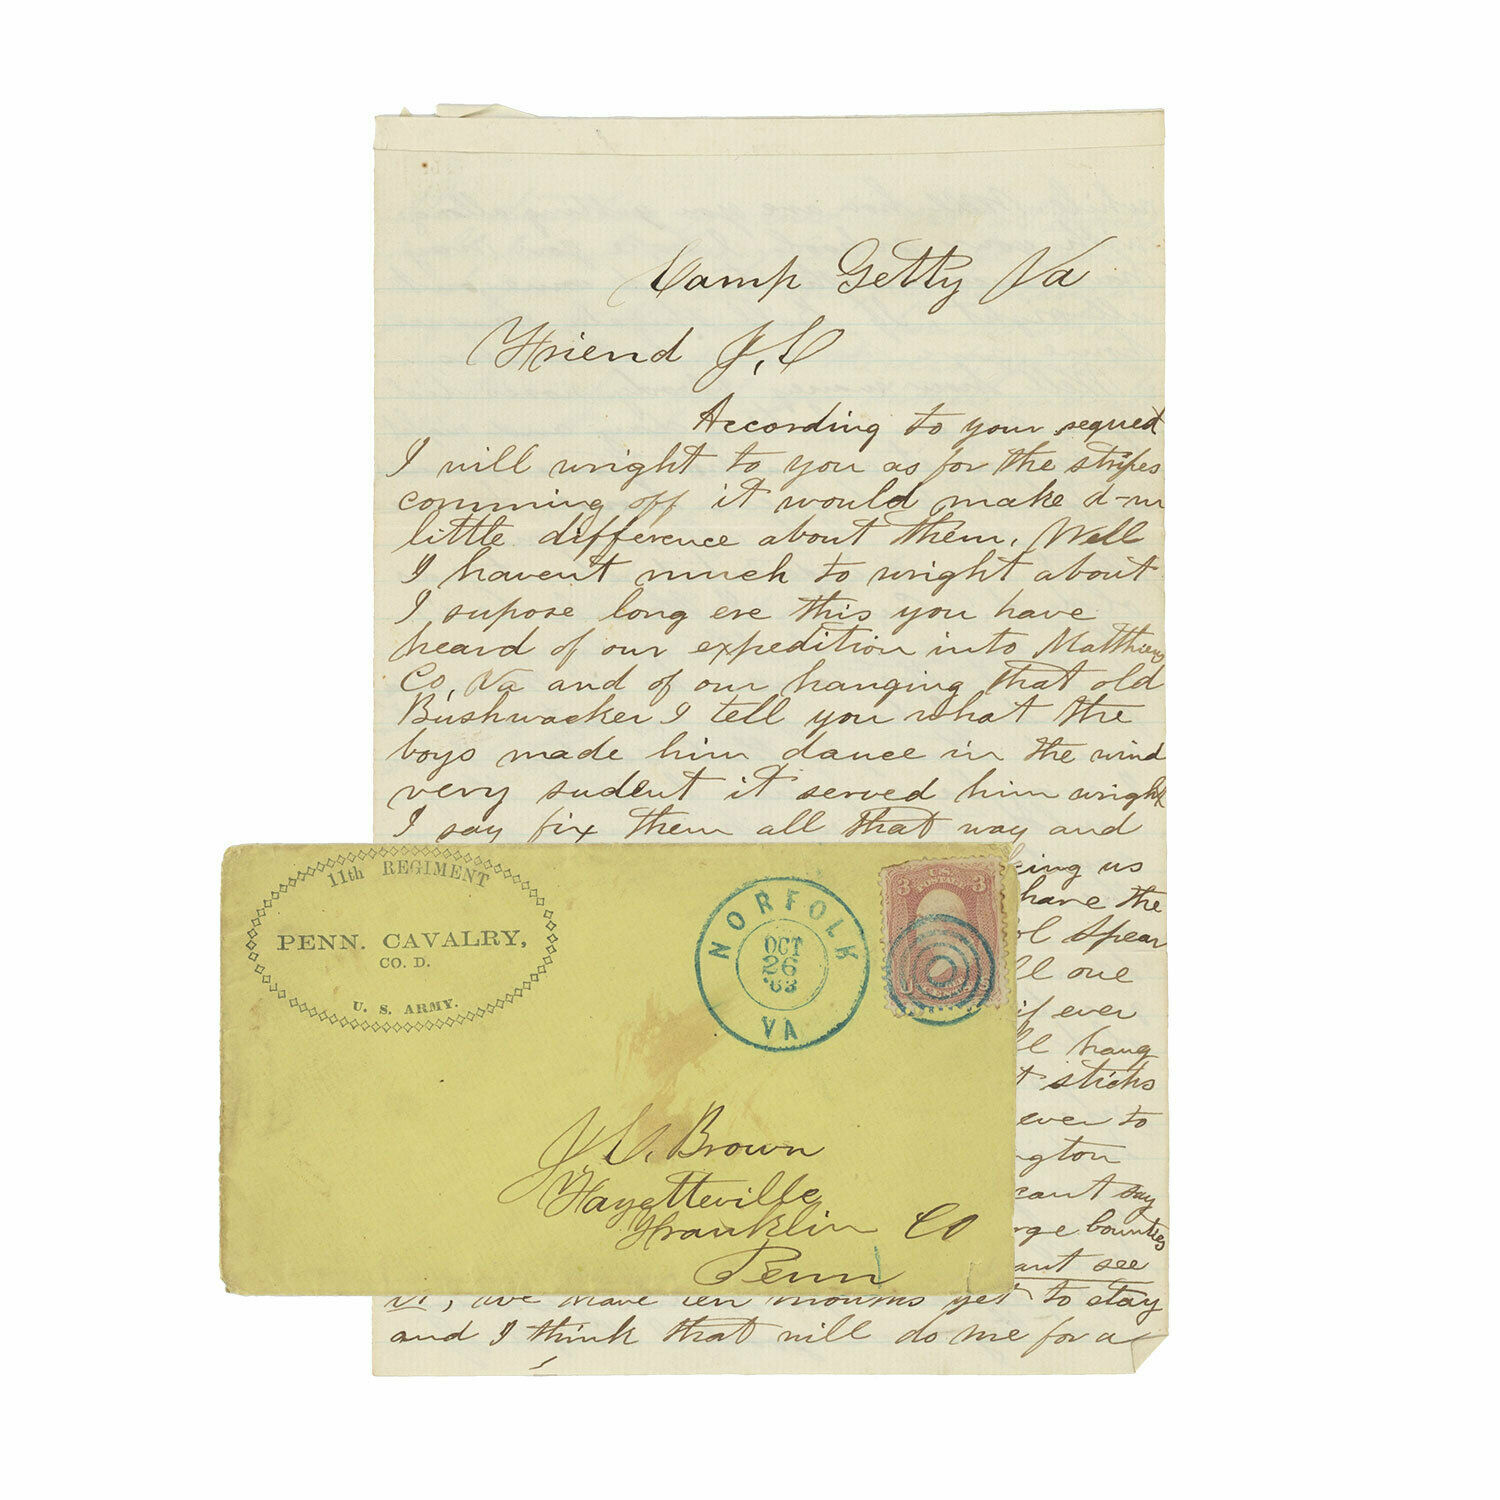 Camp Getty Va
Friend J, C
According to your request
I will wright to you as for the stripes
comming off it would make d-m
little difference about them. Well
I havent much to wright about
I supose long ere this you have
heard of our expedition into Matthews
Co, Va and of our hanging that old
Bushwacker I tell you what the
boys made him dance in the wind
very sudent it served him wright
I say fix them all that way and
us
have the
Spear
one
if ever
hang
sticks
ever to
cant say
bounties
see
it, we have ten months yet to stay
and I think that will do me for a
11th REGIMENT
PENN. CAVALRY,
CO. D.
U. S. ARMY.
NORFOLK
OCT
26
'63
VA
3 U.S. POSTAGE 3
J. C. Brown
Fayetteville
Franklin CO
Penn